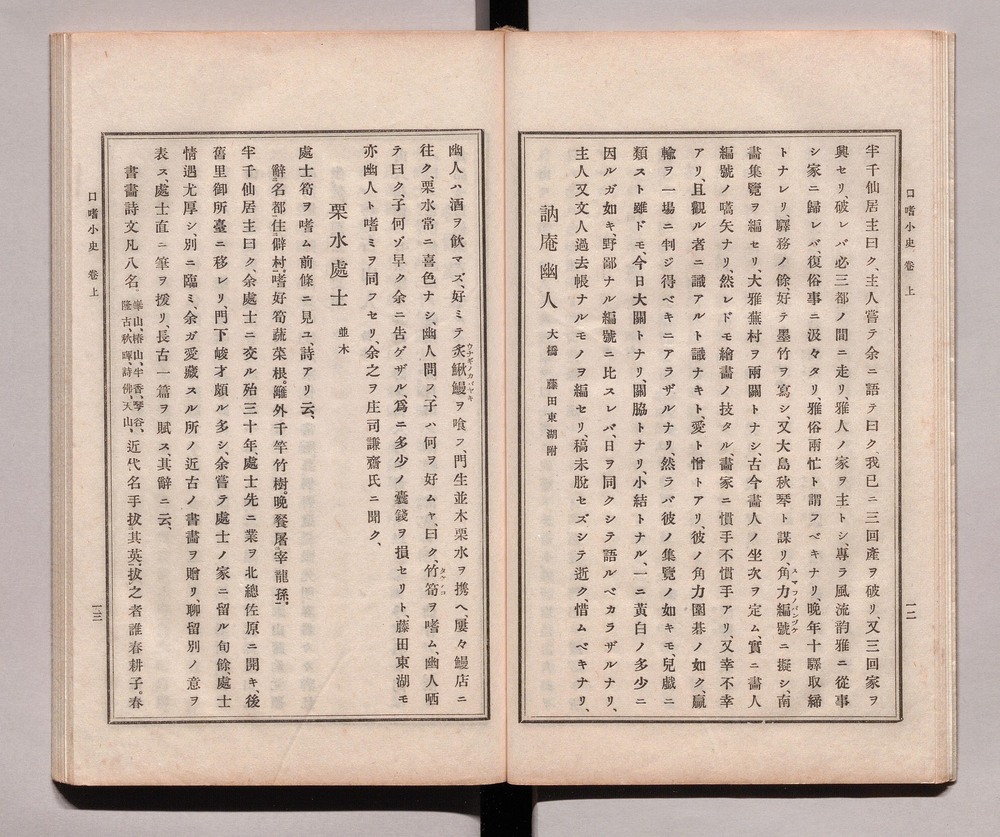 口嗜小史 卷上
一二
半千仙居主曰ク、主人嘗テ余ニ語テ曰ク、我已ニ三回產ヲ破リ、又三回家ヲ
興セリ、破レバ必三都ノ間ニ走リ、雅人ノ家ヲ主トシ、專ラ風流韵雅ニ從事
シ、家ニ歸レバ、復俗事ニ汲々タリ、雅俗兩忙ト謂フベキナリ、晩年十驛取締
トナレリ、驛務ノ餘、好テ墨竹ヲ寫シ、又大島秋琴ト謀リ、角力編號ニ擬シ、南
畵集覽ヲ編セリ、大雅蕪村ヲ兩關トナシ、古今畵人ノ坐次ヲ定ム、實ニ畵人
編號ノ嚆矢ナリ、然レドモ繪畵ノ技タル、畵家ニ慣手不慣手アリ、又幸不幸
アリ、且觀ル者ニ識アルト識ナキト、愛ト憎トアリ、彼ノ角力圍碁ノ如ク、贏
輸ヲ一場ニ判ジ得ベキニアラザルナリ、然ラバ彼ノ集覽ノ如キモ、兒戲ニ
類スト雖ドモ、今日大關トナリ、關脇トナリ、小結トナル、一ニ黃白ノ多少ニ
因ルガ如キ、野鄙ナル編號ニ比スレバ、日ヲ同クシテ語ルベカラザルナリ、
主人又文人過去帳ナルモノヲ編セリ、稿未脫セズシテ逝ク、惜ムベキナリ、
訥庵幽人 大橋 藤田東湖附
幽人ハ酒ヲ飮マズ、好ミテ炙鰍鰻ヲ喰フ、門生並木栗水ヲ携ヘ、屢々鰻店ニ
往ク、栗水常ニ喜色ナシ、幽人問フ、子ハ何ヲ好ムヤ、曰ク、竹筍ヲ嗜ム、幽人哂
テ曰ク、子何ゾ早ク余ニ告ゲザル、爲ニ多少ノ嚢錢ヲ損セリト、藤田東湖モ
亦幽人ト嗜ミヲ同フセリ、余之ヲ庄司謙齋氏ニ聞ク、
栗水處士 並木
處士筍ヲ嗜ム、前條ニ見ユ、詩アリ云、
辭名都住僻村。嗜好筍蔬菜根。籬外千竿竹樹。晩餐屠宰龍孫。
半千仙居主曰ク、余處士ニ交ル殆三十年、處士先ニ業ヲ北總佐原ニ開キ、後
舊里御所臺ニ移レリ、門下峻才頗ル多シ、余嘗テ處士ノ家ニ留ル旬餘、處士
情遇尤厚シ、別ニ臨ミ、余ガ愛藏スル所ノ近古ノ書畵ヲ贈リ、聊留別ノ意ヲ
表ス、處士直ニ筆ヲ援リ、長古一篇ヲ賦ス、其辭ニ云、
書畵詩文凡八名。崋山、椿山、半香、琴谷、隆古、秋暉、詩佛、天山、近代名手拔其英。拔之者誰春耕子。春
口嗜小史 卷上
一三